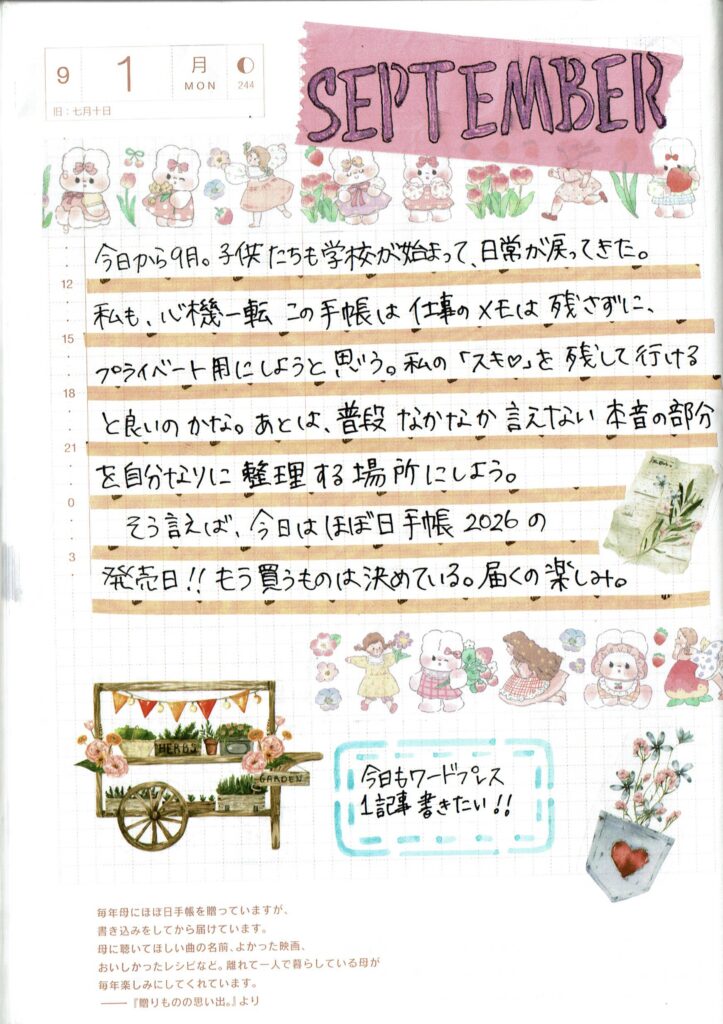 9 1 月 MON 244
旧:七月十日
SEPTEMBER
今日から9月。子供たちも学校が始まって、日常が戻ってきた。
12
私も、心機一転 この手帳は 仕事のメモは 残さずに、
15
プライベート用にしようと思う。私の「スキ♡」を 残して行ける
18
と良いのかな。あとは、普段 なかなか 言えない 本音の部分
21
を自分なりに 整理する場所にしよう。
0
そう言えば、今日は ほぼ日手帳 2026 の
3
発売日!! もう買うものは決めている。届くの楽しみ。
HERBS
GARDEN
今日もワードプレス
1記事 書きたい!!
毎年母にほぼ日手帳を贈っていますが、
書き込みをしてから届けています。
母に聴いてほしい曲の名前、よかった映画、
おいしかったレシピなど。離れて一人で暮らしている母が
毎年楽しみにしてくれています。
——『贈りものの思い出。』より